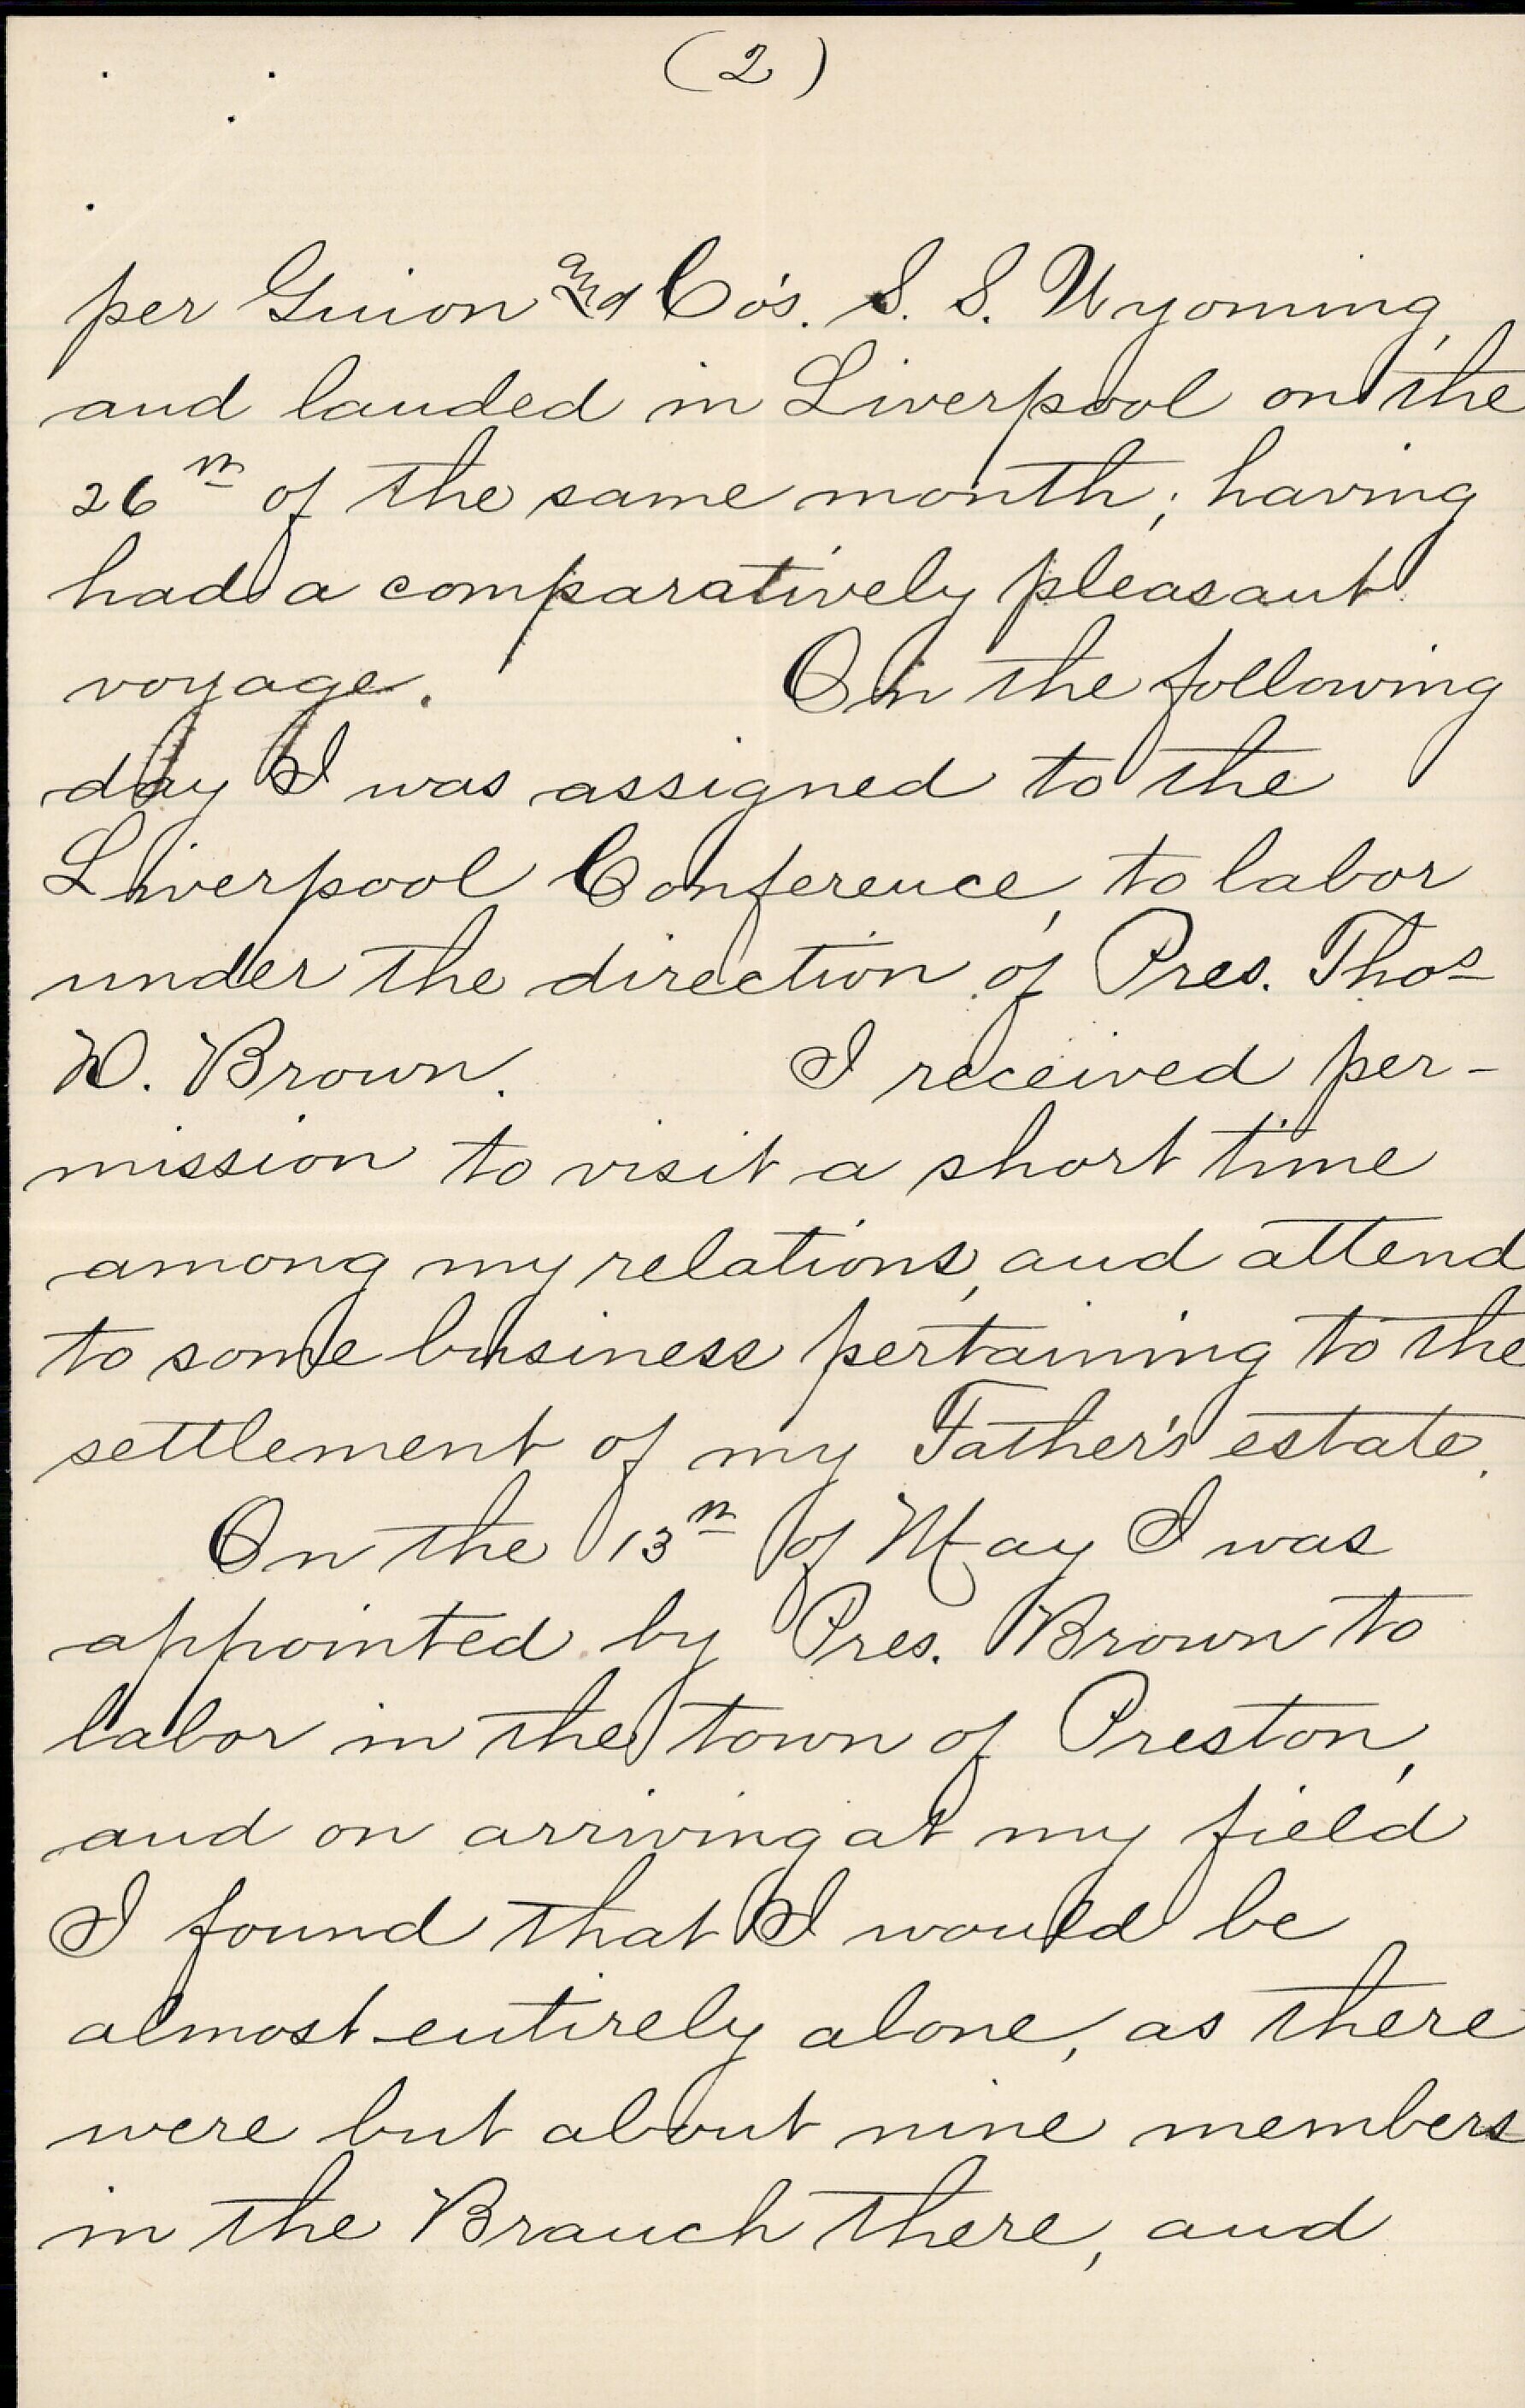 (2)
per Guion and Co's. S. S. Wyoming,
and landed in Liverpool on the
26th of the same month; having
had a comparatively pleasant
voyage. On the following
day I was assigned to the
Liverpool Conference, to labor
under the direction of Pres. Thos
W. Brown. I received per-
mission to visit a short time
among my relations, and attend
to some business pertaining to the
settlement of my Father's estate.
On the 13th of May I was
appointed by Pres. Brown to
labor in the town of Preston,
and on arriving at my field
I found that I would be
almost entirely alone, as there
were but about nine members
in the Branch there, and